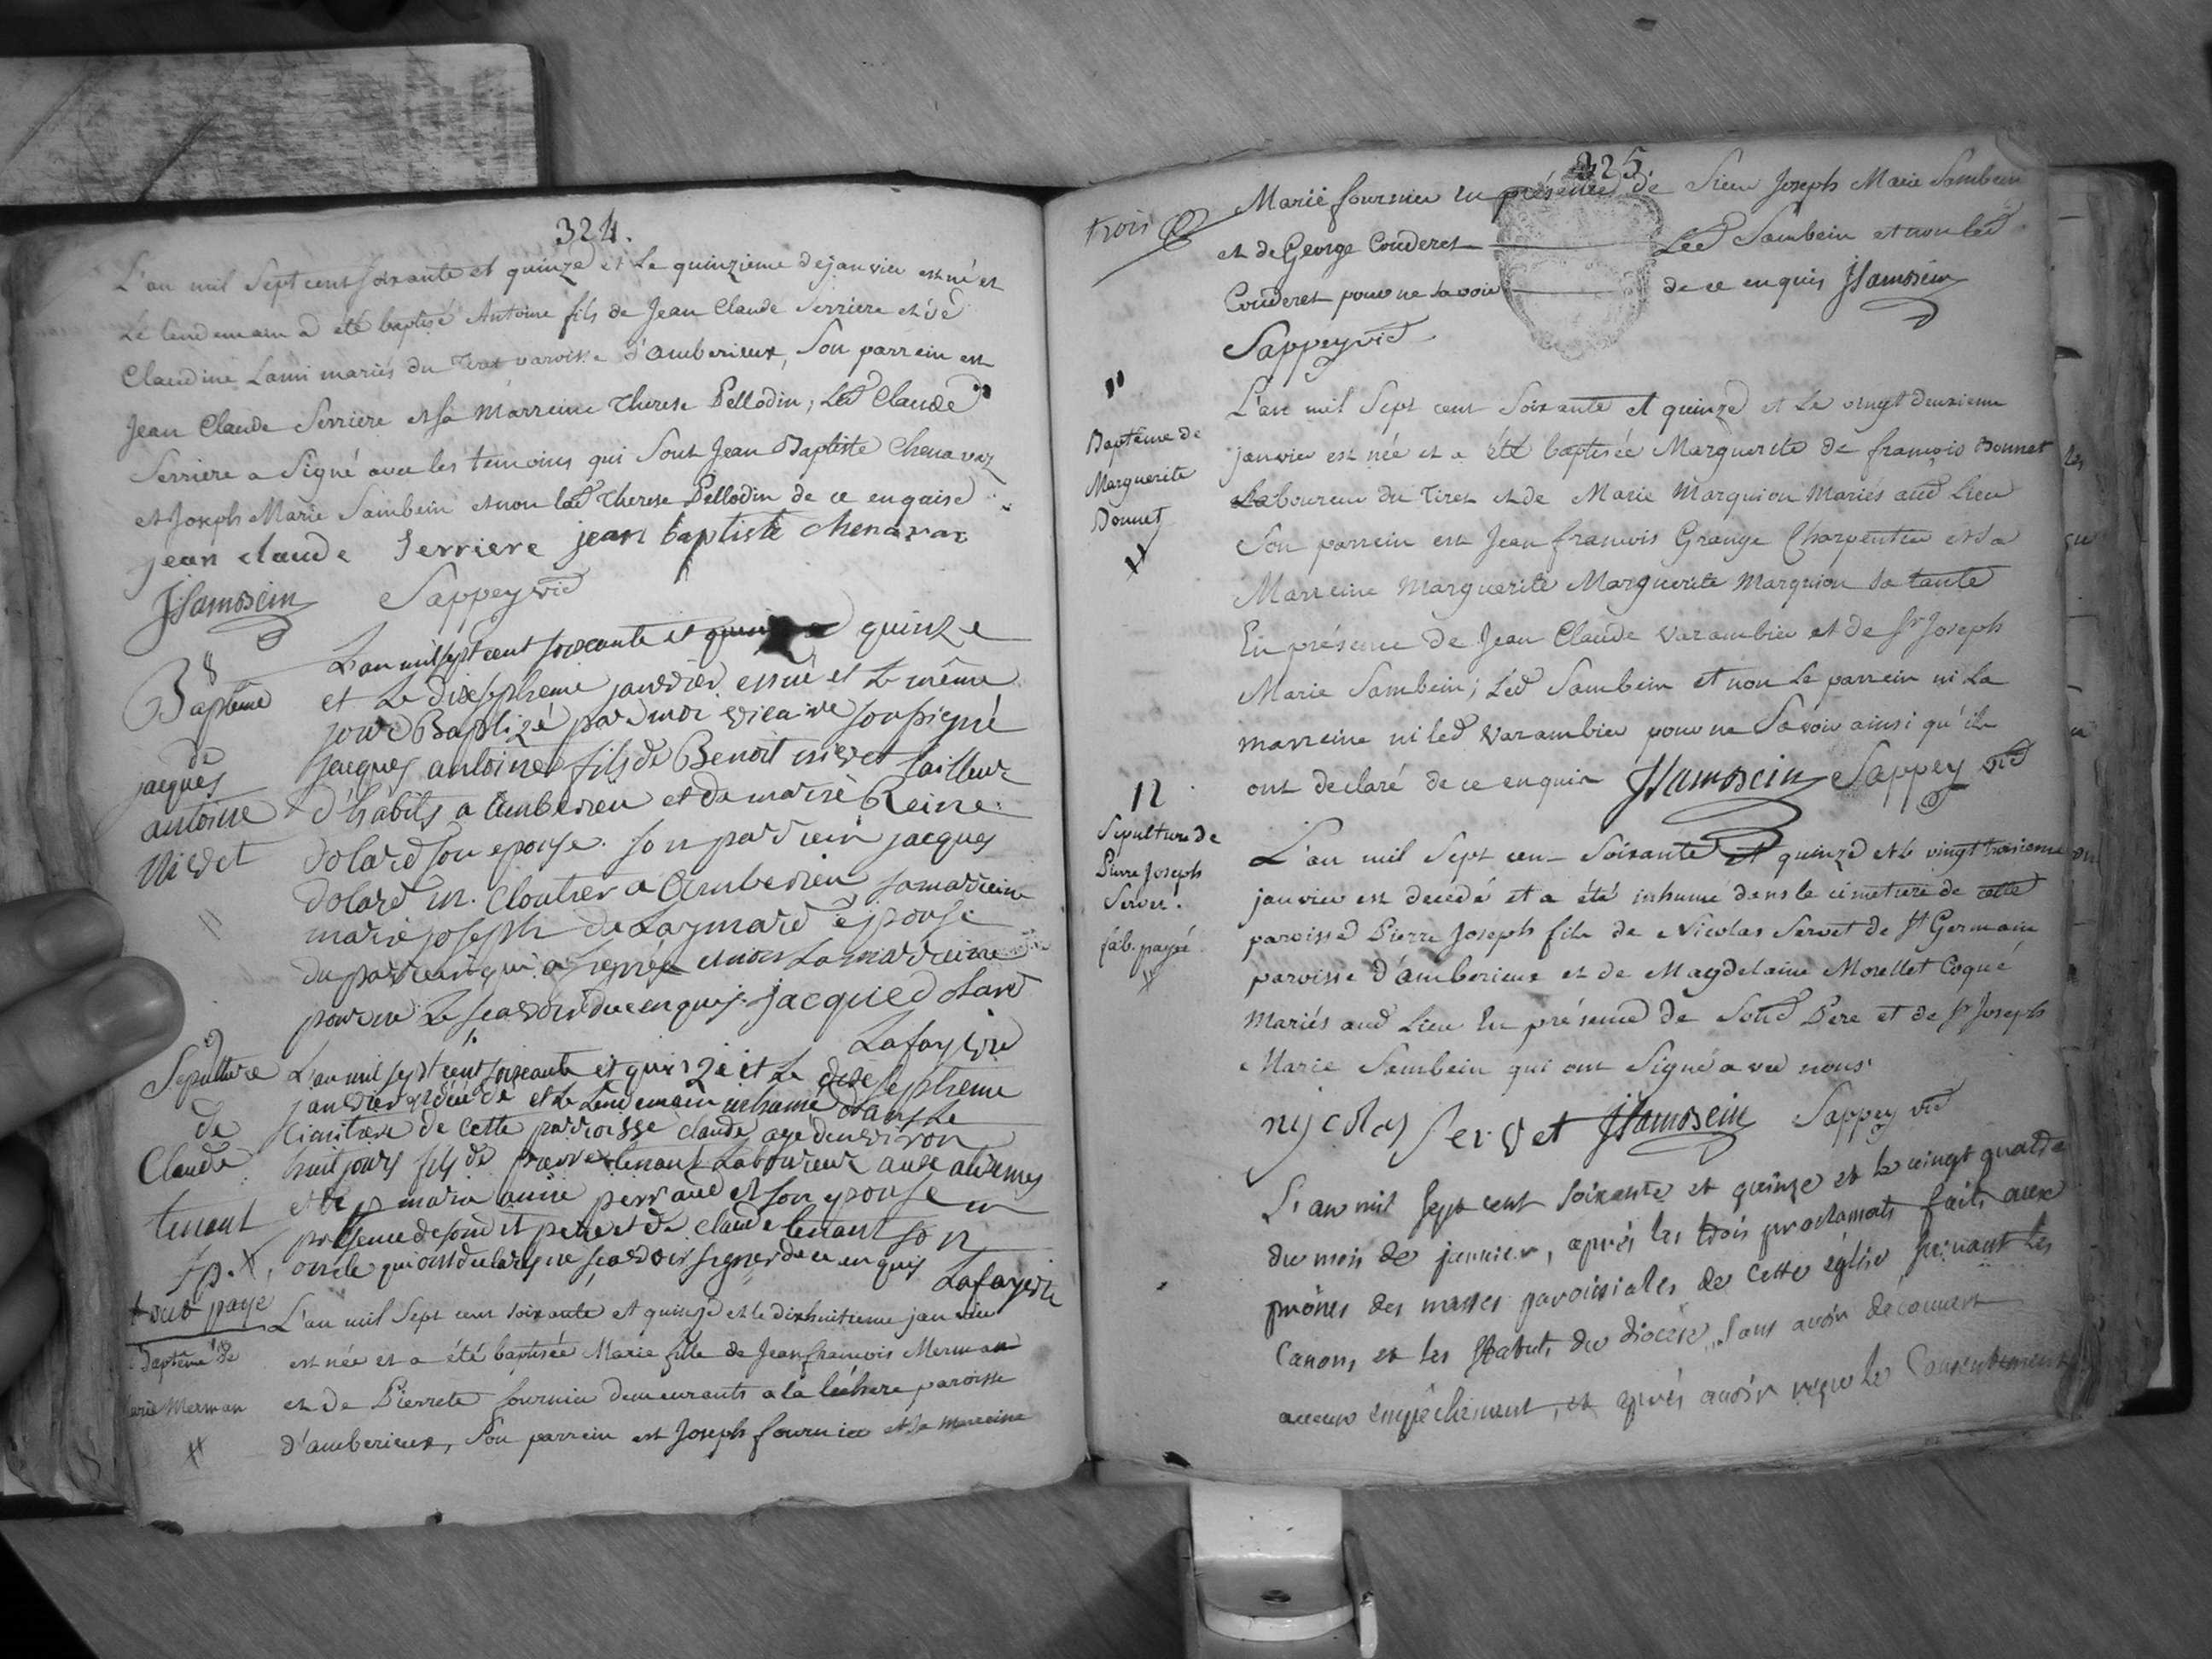 324.
L'an mil Sept cent soixante et quinze et Le quinzieme de janvier est né et
Le lendemain a été baptisé Antoine fils de Jean Claude Serriere et de
Claudine Lami mariés du Tiret paroisse d'amberieux, Son parrein est
Jean Claude Serriere et sa Marreine Therese Pellodin; Led Claude
Serriere a Signé avec les temoins qui Sont Jean Baptiste Chenavaz
et Joseph Marie Sambein et non lad Therese Pellodin de ce enquise
jean claude Serriere jean baptiste chenavaz
JSambein Sappey vic
Baptême
de
jacques
antoine
Nivet
L'an mil sept cent soixante et quinze
et Le dixseptieme janvier est né et Le même
jour Baptizé par moi vicaire soussigné
jacques antoine fils de Benoit nivet tailleur
d'habits a amberieu et de marie Reine
Dolard son epouse. son parrein jacques
Dolard m. Cloutier a amberieu sa marreine
marie joseph de Laymard épouse
du parrein qui a signé et non La marreine
pour ne Le sçavoir de ce enquis. jacque dolard
Lafay vic
Sepulture
de
Claude
tenant
tout payé
L'an mil sept cent soixante et quinze et Le dixseptieme
janvier est décédé et Le Lendemain inhumé dans Le
cimitiere de cette parroisse claude agé denviron
huit jours fils de pierre tenant Laboureur aux alimes
et de marie anne perraud et son epouse en
présence desondit pere et de claude tenant son
oncle qui ont declaré ne sçavoir signer de ce enquis Lafay vic
Baptême de
Marie Merman
L'an mil Sept cent soixante et quinze et le dixhuitieme janvier
est née et a été baptisée Marie fille de Jean francois Merman
et de Pierrete fournier demeurants a la léchere paroisse
d'amberieux, Son parrein est Joseph fournier et sa marreine
325
trois
Marie fournier en présence de Sieur Joseph Marie Sambein
et de George Couderet Led Sambein et non led
Couderet pour ne savoir de ce enquis JSambein
Sappey vic
11
Baptême de
Marguerite
Bonnet
L'an mil Sept cent Soixante et quinze et Le vingt deuxieme
janvier est née et a été baptisée Marguerite de francois Bonnet
Laboureur du Tiret et de Marie Marquion Mariés aud Lieu
Son parrein est Jean francois Grange Charpentier et sa
Marreine Marguerite Marguerite Marquion sa tante
En présence de Jean Claude Varambier et de Sr Joseph
Marie Sambein; Led Sambein et non Le parrein ni La
marreine ni led Varambier pour ne Savoir ainsi qu'ils
ont declaré de ce enquis JSambein Sappey vic
12
Sepulture de
Pierre Joseph
Servet.
fab. payé
L'an mil Sept cent Soixante et quinze et le vingt troisieme
janvier est decedé et a été inhumé dans le cimetiere de cette
paroisse Pierre Joseph fils de Nicolas Servet de St Germain
paroisse d'amberieux et de Magdelaine Morellet Coque
Mariés aud Lieu En présence de Sond Pere et de Sr Joseph
Marie Sambein qui ont Signé avec nous
nycolas servet JSambein Sappey vic
L'an mil sept cent soixante et quinze et le vingt quatre
du mois de janvier, après les trois proclamats faits aux
prônes des messes paroissiales de cette église suivant les
Canons et les statuts du diocèse, sans avoir découvert
aucun empêchement, et après avoir reçu le Consentement